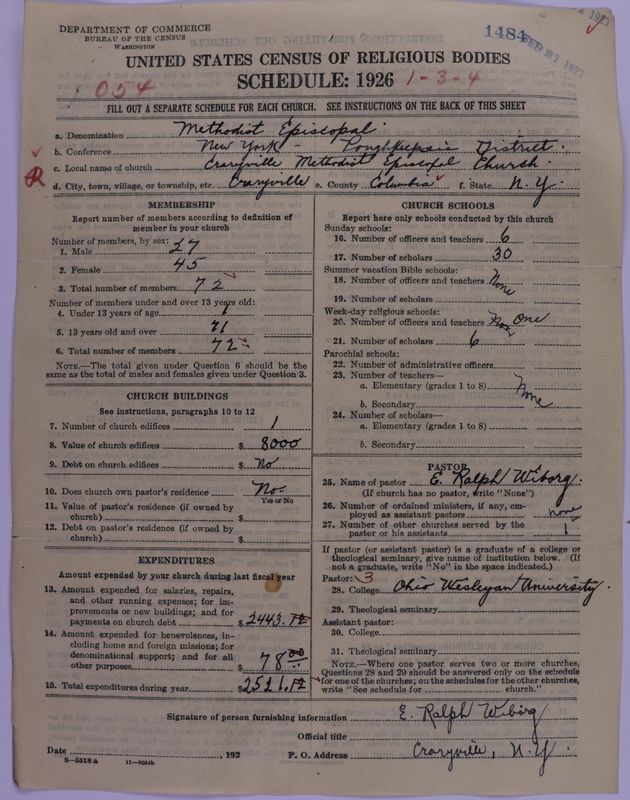 DEPARTMENT OF COMMERCE
BUREAU OF THE CENSUS
WASHINGTON
1484
FEB 21 1927
UNITED STATES CENSUS OF RELIGIOUS BODIES
SCHEDULE: 1926
054
1-3-4
FILL OUT A SEPARATE SCHEDULE FOR EACH CHURCH. SEE INSTRUCTIONS ON THE BACK OF THIS SHEET
a. Denomination Methodist Episcopal
b. Conference New York - Poughkeepsie District.
c. Local name of church Craryville Methodist Episcopal Church.
d. City, town, village, or township, etc. Craryville e. County Columbia f. State N.Y.
MEMBERSHIP
Report number of members according to definition of
member in your church
Number of members, by sex:
1. Male 27
2. Female 45
3. Total number of members 72
Number of members under and over 13 years old:
4. Under 13 years of age 1
5. 13 years old and over 71
6. Total number of members 72
NOTE.—The total given under Question 6 should be
same as the total of males and females given under Question 3.
CHURCH BUILDINGS
See instructions, paragraphs 10 to 12
7. Number of church edifices 1
8. Value of church edifices $ 8000
9. Debt on church edifices $ No
10. Does church own pastor's residence No.
Yes or No
11. Value of pastor's residence (if owned by
church) $
12. Debt on pastor's residence (if owned by
church) $
EXPENDITURES
Amount expended by your church during last fiscal year
13. Amount expended for salaries, repairs,
and other running expenses; for im-
provements or new buildings; and for
payments on church debt $ 2443.
14. Amount expended for benevolences, in-
cluding home and foreign missions; for
denominational support; and for all
other purposes $ 78 00
15. Total expenditures during year $ 2521.
CHURCH SCHOOLS
Report here only schools conducted by this church
Sunday schools:
16. Number of officers and teachers 6
17. Number of scholars 30
Summer vacation Bible schools:
18. Number of officers and teachers None
19. Number of scholars
Week-day religious schools:
20. Number of officers and teachers None One
21. Number of scholars 6
Parochial schools:
22. Number of administrative officers
23. Number of teachers—
a. Elementary (grades 1 to 8) None
b. Secondary
24. Number of scholars—
a. Elementary (grades 1 to 8)
b. Secondary
PASTOR
25. Name of pastor E. Ralph Wiborg.
(If church has no pastor, write "None")
26. Number of ordained ministers, if any, em-
ployed as assistant pastors none
27. Number of other churches served by the
pastor or his assistants 1
If pastor (or assistant pastor) is a graduate of a college or
theological seminary, give name of institution below. (If
not a graduate, write "No" in the space indicated.)
Pastor: 3
28. College Ohio Wesleyan University.
29. Theological seminary
Assistant pastor:
30. College
31. Theological seminary
NOTE.—Where one pastor serves two or more churches,
Questions 28 and 29 should be answered only on the schedule
for one of the churches; on the schedules for the other churches,
write "See schedule for church."
Signature of person furnishing information E. Ralph Wiborg
Official title
Date , 192 P. O. Address Craryville, N.Y.
8-5518 a 11-9084b